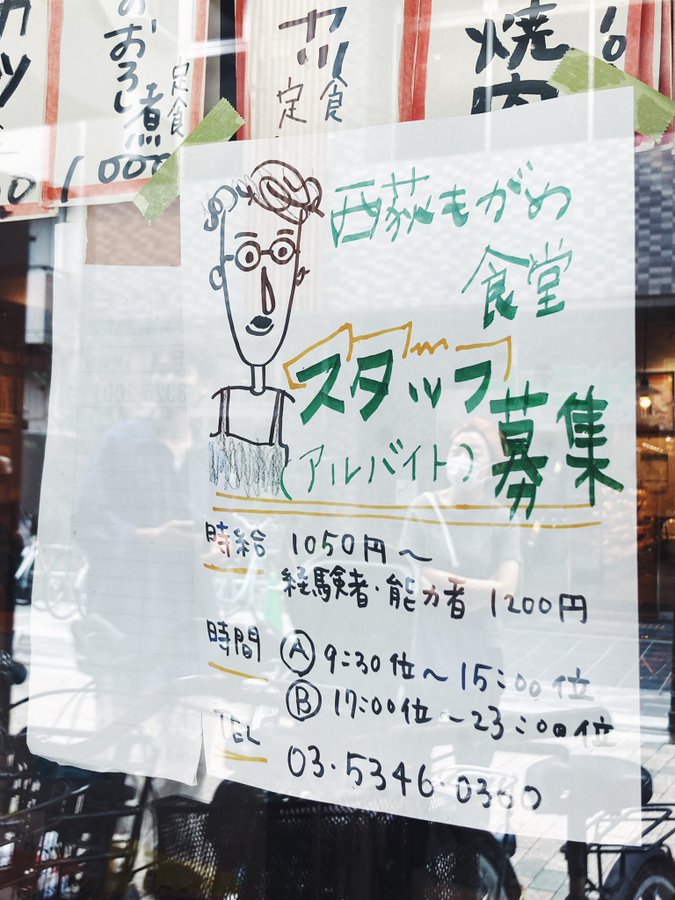 おろし煮
定食
1000
カツ
定食
焼肉
西荻もがめ
食堂
スタッフ
募集
(アルバイト)
時給 1050円〜
経験者・能力者 1200円
時間 Ⓐ 9:30位〜15:00位
Ⓑ 17:00位〜23:00位
TEL
03・5346・0360